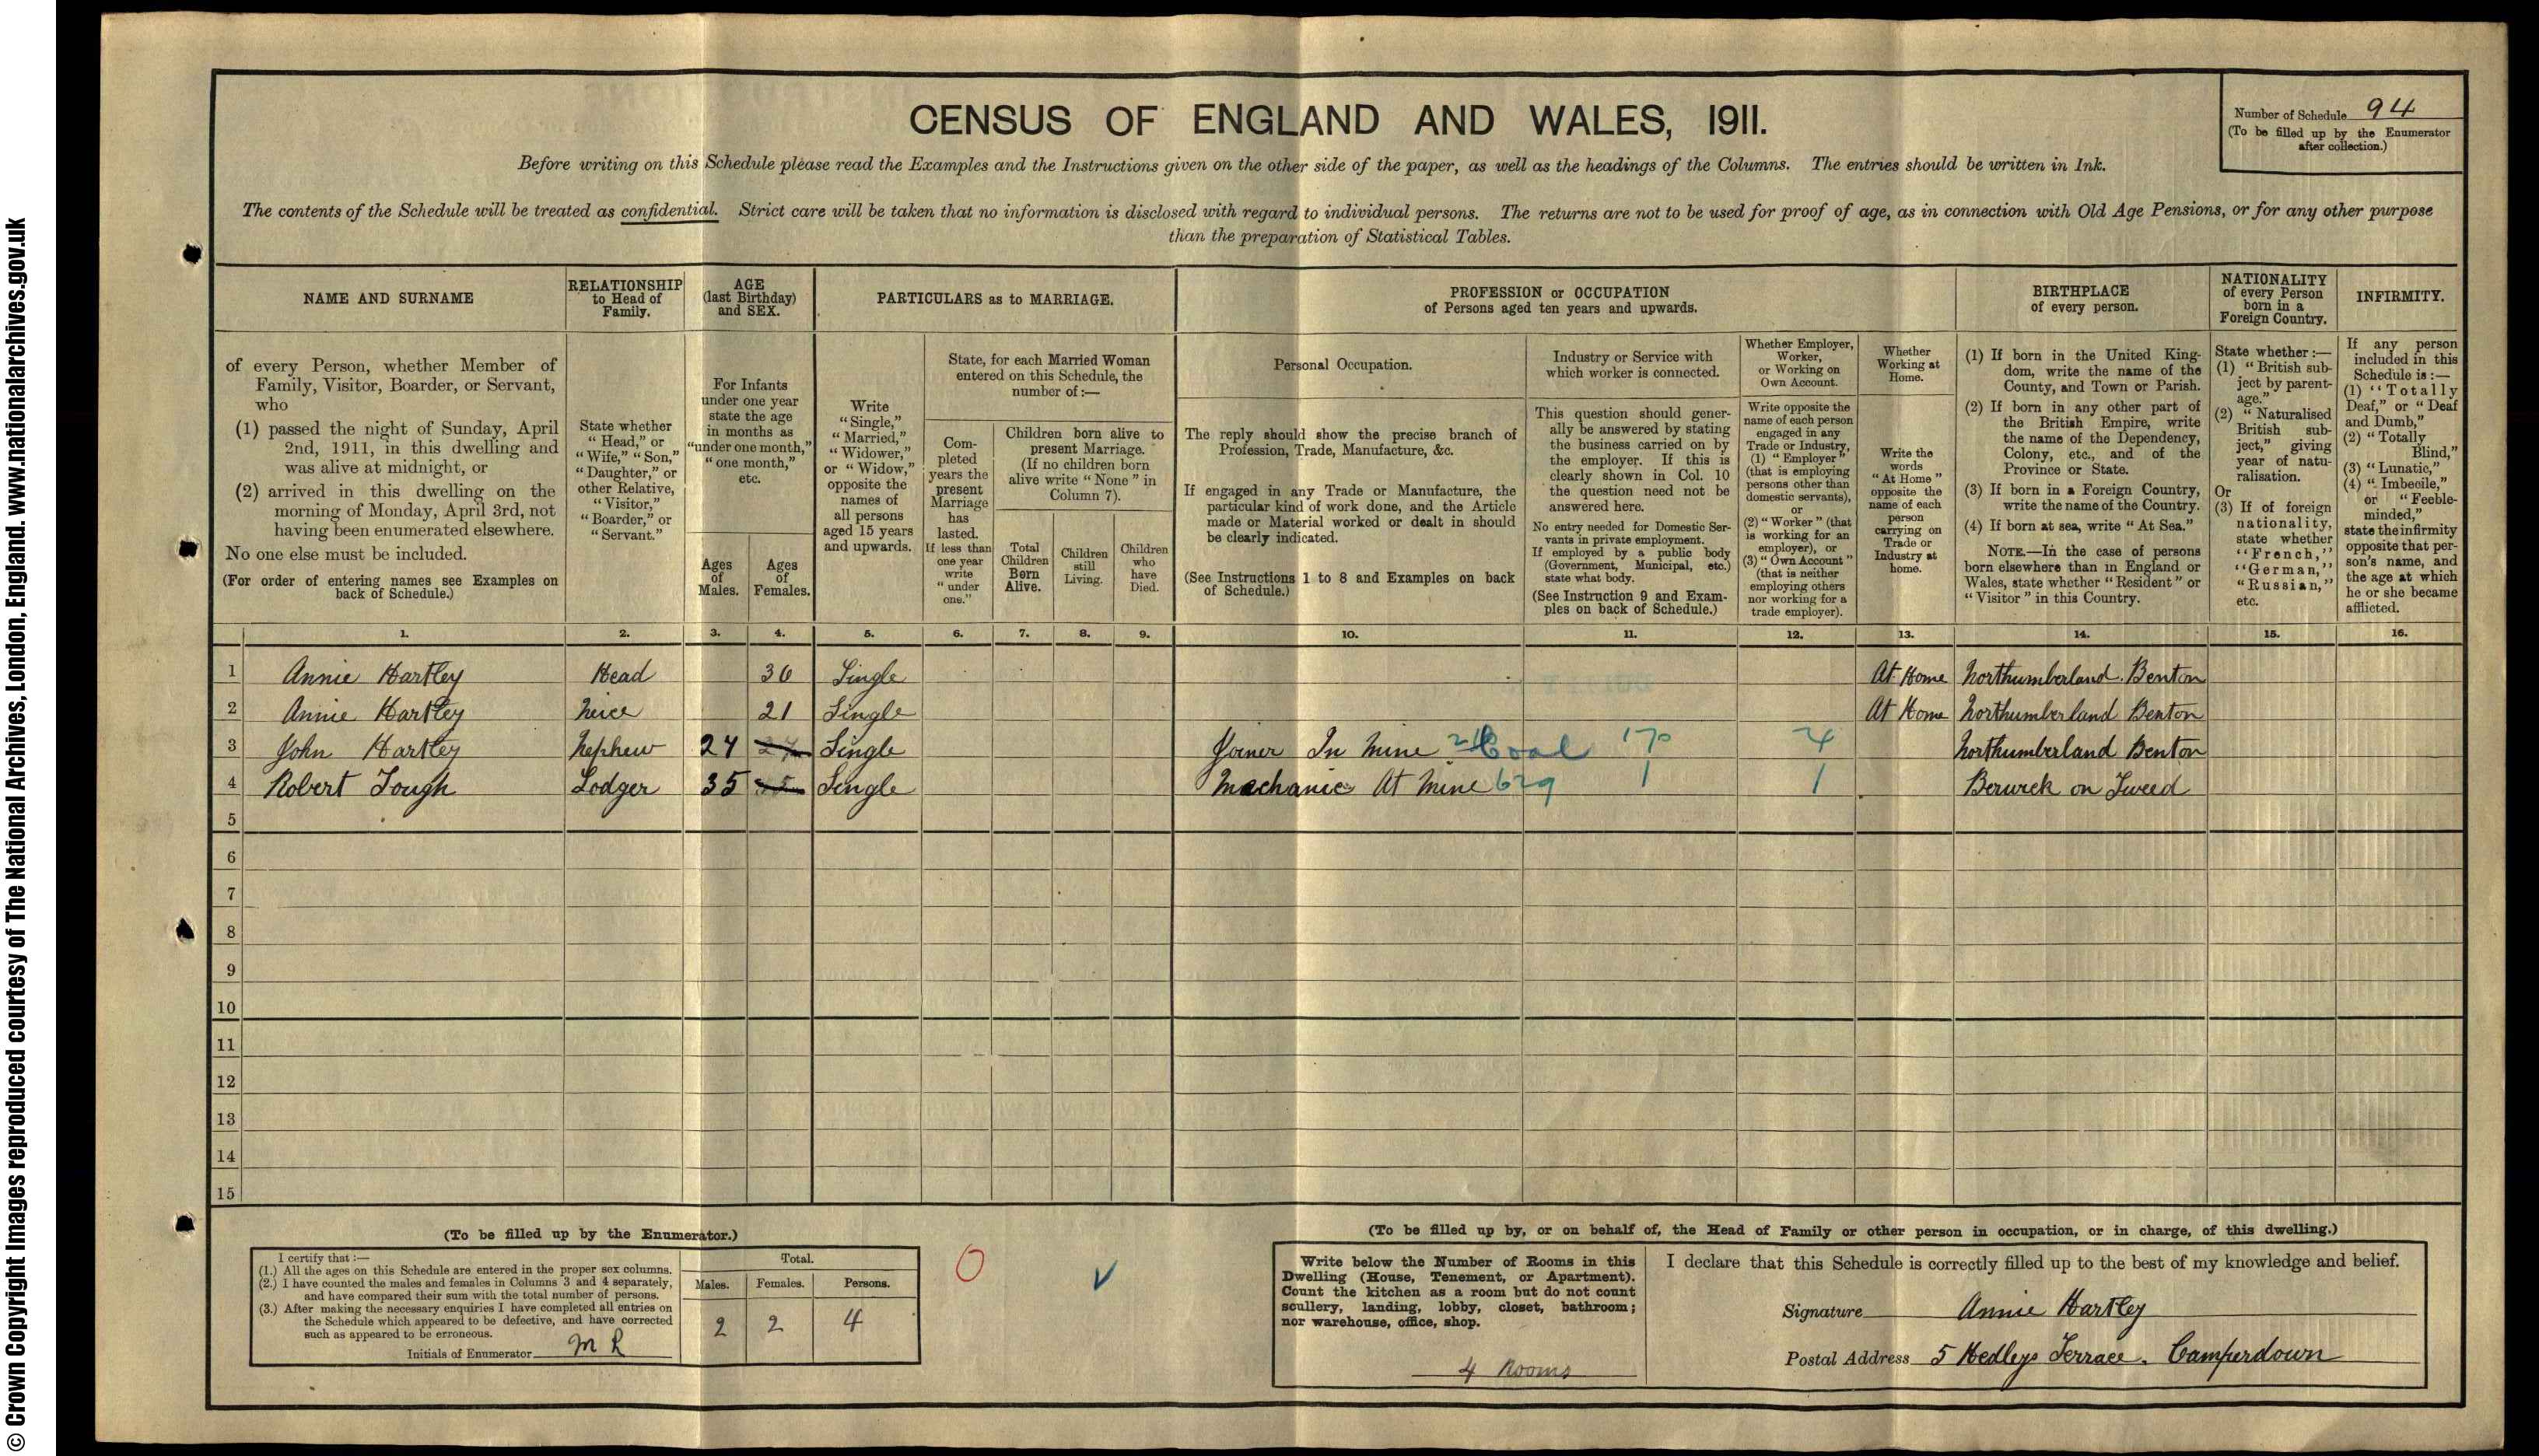 © Crown Copyright Images reproduced courtesy of The National Archives, London, England. www.nationalarchives.gov.uk
CENSUS OF ENGLAND AND WALES, 1911.
Number of Schedule 94
(To be filled up by the Enumerator
after collection.)
Before writing on this Schedule please read the Examples and the Instructions given on the other side of the paper, as well as the headings of the Columns. The entries should be written in Ink.
The contents of the Schedule will be treated as confidential. Strict care will be taken that no information is disclosed with regard to individual persons. The returns are not to be used for proof of age, as in connection with Old Age Pensions, or for any other purpose
than the preparation of Statistical Tables.
NAME AND SURNAME
of every Person, whether Member of
Family, Visitor, Boarder, or Servant,
who
(1) passed the night of Sunday, April
2nd, 1911, in this dwelling and
was alive at midnight, or
(2) arrived in this dwelling on the
morning of Monday, April 3rd, not
having been enumerated elsewhere.
No one else must be included.
(For order of entering names see Examples on
back of Schedule.)
RELATIONSHIP
to Head of
Family.
State whether
"Head," or
"Wife," "Son,"
"Daughter," or
other Relative,
"Visitor,"
"Boarder," or
"Servant."
AGE
(last Birthday)
and SEX.
For Infants
under one year
state the age
in months as
"under one month,"
"one month,"
etc.
Ages
of
Males.
Ages
of
Females.
PARTICULARS as to MARRIAGE.
Write
"Single,"
"Married,"
"Widower,"
or "Widow,"
opposite the
names of
all persons
aged 15 years
and upwards.
State, for each Married Woman
entered on this Schedule, the
number of :—
Com-
pleted
years the
present
Marriage
has
lasted.
If less than
one year
write
"under
one."
Children born alive to
present Marriage.
(If no children born
alive write "None" in
Column 7).
Total
Children
Born
Alive.
Children
still
Living.
Children
who
have
Died.
PROFESSION or OCCUPATION
of Persons aged ten years and upwards.
Personal Occupation.
The reply should show the precise branch of
Profession, Trade, Manufacture, &c.
If engaged in any Trade or Manufacture, the
particular kind of work done, and the Article
made or Material worked or dealt in should
be clearly indicated.
(See Instructions 1 to 8 and Examples on back
of Schedule.)
Industry or Service with
which worker is connected.
This question should gener-
ally be answered by stating
the business carried on by
the employer. If this is
clearly shown in Col. 10
the question need not be
answered here.
No entry needed for Domestic Ser-
vants in private employment.
If employed by a public body
(Government, Municipal, etc.)
state what body.
(See Instruction 9 and Exam-
ples on back of Schedule.)
Whether Employer,
Worker,
or Working on
Own Account.
Write opposite the
name of each person
engaged in any
Trade or Industry,
(1) "Employer"
(that is employing
persons other than
domestic servants),
or
(2) "Worker" (that
is working for an
employer), or
(3) "Own Account"
(that is neither
employing others
nor working for a
trade employer).
Whether
Working at
Home.
Write the
words
"At Home"
opposite the
name of each
person
carrying on
Trade or
Industry at
home.
BIRTHPLACE
of every person.
(1) If born in the United King-
dom, write the name of the
County, and Town or Parish.
(2) If born in any other part of
the British Empire, write
the name of the Dependency,
Colony, etc., and of the
Province or State.
(3) If born in a Foreign Country,
write the name of the Country.
(4) If born at sea, write "At Sea."
NOTE.—In the case of persons
born elsewhere than in England or
Wales, state whether "Resident" or
"Visitor" in this Country.
NATIONALITY
of every Person
born in a
Foreign Country.
State whether :—
(1) "British sub-
ject by parent-
age."
(2) "Naturalised
British sub-
ject," giving
year of natu-
ralisation.
Or
(3) If of foreign
nationality,
state whether
"French,"
"German,"
"Russian,"
etc.
INFIRMITY.
If any person
included in this
Schedule is :—
(1) "Totally
Deaf," or "Deaf
and Dumb,"
(2) "Totally
Blind,"
(3) "Lunatic,"
(4) "Imbecile,"
or "Feeble-
minded,"
state the infirmity
opposite that per-
son's name, and
the age at which
he or she became
afflicted.
1. 2. 3. 4. 5. 6. 7. 8. 9. 10. 11. 12. 13. 14. 15. 16.
1 Annie Hartley Head 36 Single At Home Northumberland. Benton
2 Annie Hartley Neice 21 Single At Home Northumberland Benton
3 John Hartley Nephew 24 Single Joiner In Mine Coal 170 Northumberland Benton
4 Robert Tough Lodger 35 Single Mechanic At Mine 629 1 1 Berwick on Tweed
5
6
7
8
9
10
11
12
13
14
15
(To be filled up by the Enumerator.)
I certify that :—
(1.) All the ages on this Schedule are entered in the proper sex columns.
(2.) I have counted the males and females in Columns 3 and 4 separately,
and have compared their sum with the total number of persons.
(3.) After making the necessary enquiries I have completed all entries on
the Schedule which appeared to be defective, and have corrected
such as appeared to be erroneous.
Initials of Enumerator M R
Total.
Males. Females. Persons.
2 2 4
0
(To be filled up by, or on behalf of, the Head of Family or other person in occupation, or in charge, of this dwelling.)
Write below the Number of Rooms in this
Dwelling (House, Tenement, or Apartment).
Count the kitchen as a room but do not count
scullery, landing, lobby, closet, bathroom;
nor warehouse, office, shop.
4 Rooms
I declare that this Schedule is correctly filled up to the best of my knowledge and belief.
Signature Annie Hartley
Postal Address 5 Hedleys Terrace. Camperdown